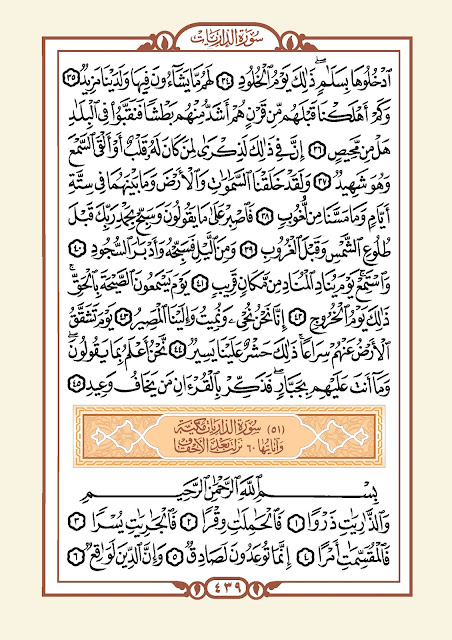 سورة الذاريات
ٱدۡخُلُوهَا بِسَلَٰمٖۖ ذَٰلِكَ يَوۡمُ ٱلۡخُلُودِ ٣٤ لَهُم مَّا يَشَآءُونَ فِيهَا وَلَدَيۡنَا مَزِيدٞ ٣٥
وَكَمۡ أَهۡلَكۡنَا قَبۡلَهُم مِّن قَرۡنٍ هُمۡ أَشَدُّ مِنۡهُم بَطۡشٗا فَنَقَّبُواْ فِي ٱلۡبِلَٰدِ
هَلۡ مِن مَّحِيصٍ ٣٦ إِنَّ فِي ذَٰلِكَ لَذِكۡرَىٰ لِمَن كَانَ لَهُۥ قَلۡبٌ أَوۡ أَلۡقَى ٱلسَّمۡعَ
وَهُوَ شَهِيدٞ ٣٧ وَلَقَدۡ خَلَقۡنَا ٱلسَّمَٰوَٰتِ وَٱلۡأَرۡضَ وَمَا بَيۡنَهُمَا فِي سِتَّةِ
أَيَّامٖ وَمَا مَسَّنَا مِن لُّغُوبٖ ٣٨ فَٱصۡبِرۡ عَلَىٰ مَا يَقُولُونَ وَسَبِّحۡ بِحَمۡدِ رَبِّكَ قَبۡلَ
طُلُوعِ ٱلشَّمۡسِ وَقَبۡلَ ٱلۡغُرُوبِ ٣٩ وَمِنَ ٱلَّيۡلِ فَسَبِّحۡهُ وَأَدۡبَٰرَ ٱلسُّجُودِ ٤٠
وَٱسۡتَمِعۡ يَوۡمَ يُنَادِ ٱلۡمُنَادِ مِن مَّكَانٖ قَرِيبٖ ٤١ يَوۡمَ يَسۡمَعُونَ ٱلصَّيۡحَةَ بِٱلۡحَقِّۚ
ذَٰلِكَ يَوۡمُ ٱلۡخُرُوجِ ٤٢ إِنَّا نَحۡنُ نُحۡيِۦ وَنُمِيتُ وَإِلَيۡنَا ٱلۡمَصِيرُ ٤٣ يَوۡمَ تَشَقَّقُ
ٱلۡأَرۡضُ عَنۡهُمۡ سِرَاعٗاۚ ذَٰلِكَ حَشۡرٌ عَلَيۡنَا يَسِيرٞ ٤٤ نَّحۡنُ أَعۡلَمُ بِمَا يَقُولُونَۖ
وَمَآ أَنتَ عَلَيۡهِم بِجَبَّارٖۖ فَذَكِّرۡ بِٱلۡقُرۡءَانِ مَن يَخَافُ وَعِيدِ ٤٥
(٥١) سورة الذاريات مكية
وآياتها ٦٠ نزلت بعد الأحقاف
بِسۡمِ ٱللَّهِ ٱلرَّحۡمَٰنِ ٱلرَّحِيمِ
وَٱلذَّٰرِيَٰتِ ذَرۡوٗا ١ فَٱلۡحَٰمِلَٰتِ وِقۡرٗا ٢ فَٱلۡجَٰرِيَٰتِ يُسۡرٗا ٣
فَٱلۡمُقَسِّمَٰتِ أَمۡرًا ٤ إِنَّمَا تُوعَدُونَ لَصَادِقٞ ٥ وَإِنَّ ٱلدِّينَ لَوَٰقِعٞ ٦
٤٣٩